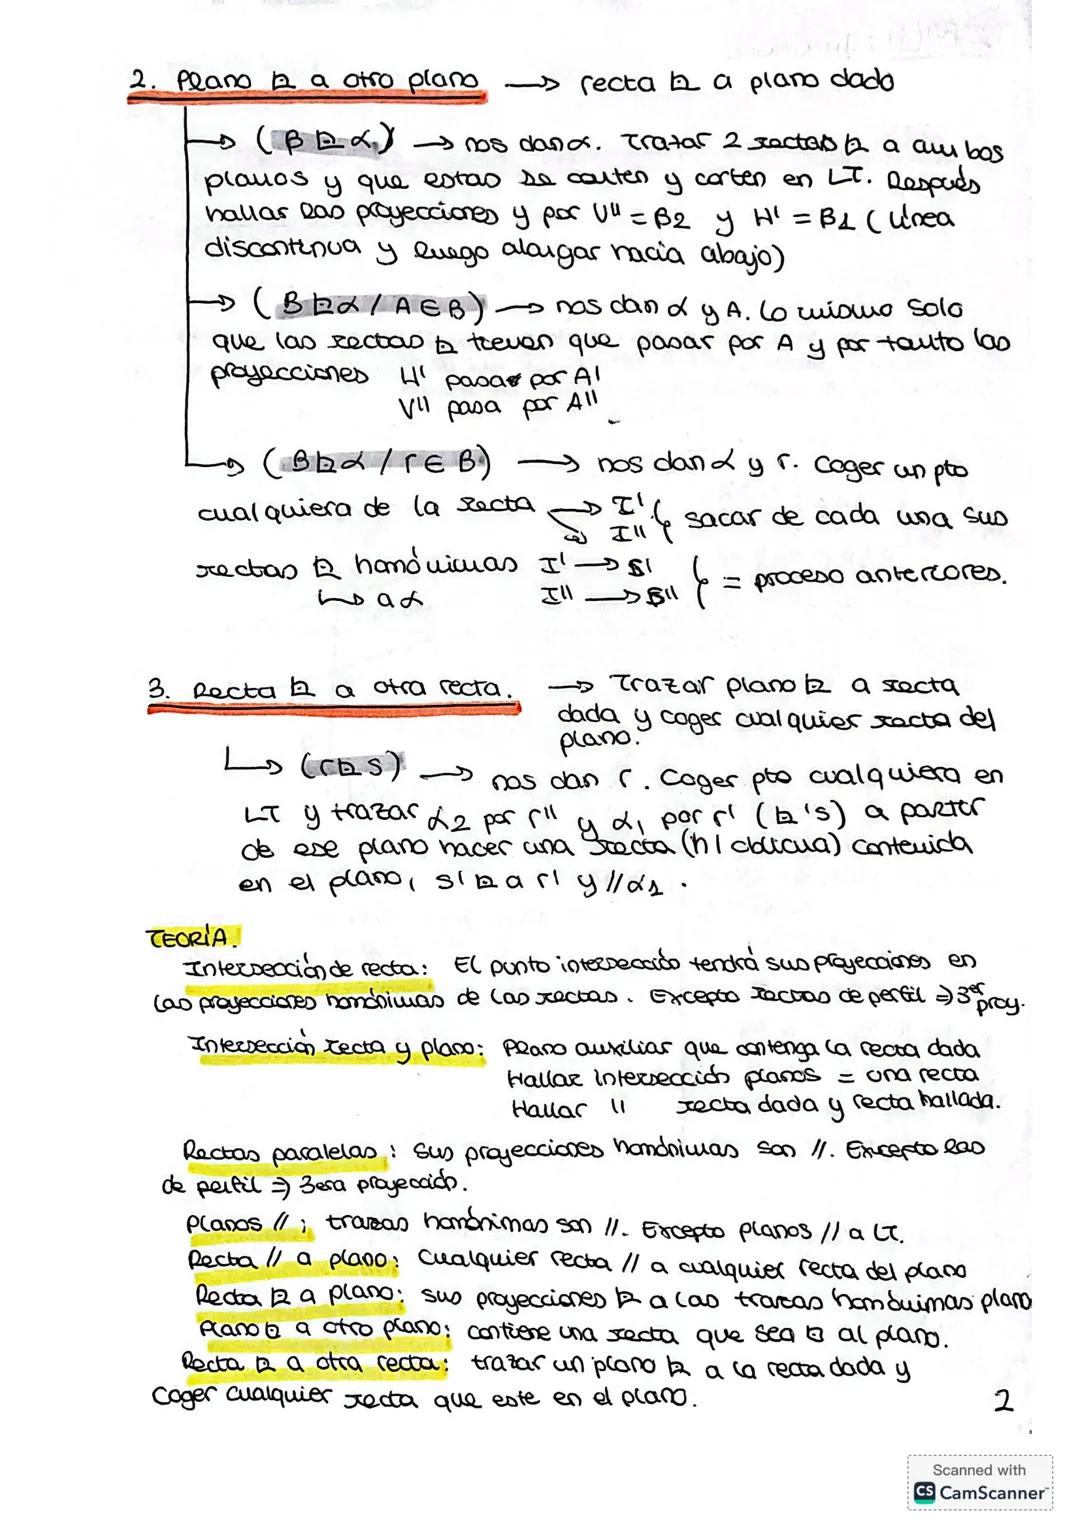 2. Plano ⊥ a otro plano → recta ⊥ a plano dado
→ (β ⊥ α) → nos dan α. Trazar 2 rectas ⊥ a ambos
planos y que estas se corten y corten en LT. Después
hallar las proyecciones y por V" = β2 y H' = β1 (línea
discontinua y luego alargar hacia abajo)
→ (β ⊥ α / A ∈ β) → nos dan α y A. Lo mismo solo
que las rectas ⊥ tienen que pasar por A y por tanto las
proyecciones H' pasa por A'
V" pasa por A"
→ (β ⊥ α / r ∈ β) → nos dan α y r. Coger un pto
cualquiera de la recta → I'
→ I" } sacar de cada una sus
rectas ⊥ homónimas I' → S'
↳ a α I" → S" } = proceso anteriores.
3. Recta ⊥ a otra recta. → Trazar plano ⊥ a recta
dada y coger cualquier recta del
plano.
↳ (r ⊥ s) → nos dan r. Coger pto cualquiera en
LT y trazar α2 por r" y α1 por r' (⊥'s) a partir
de ese plano hacer una recta (h / oblicua) contenida
en el plano, s' ⊥ a r' y // α1.
TEORÍA.
Intersección de recta: El punto intersección tendrá sus proyecciones en
las proyecciones homónimas de las rectas. Excepto rectas de perfil ⇒ 3er proy.
Intersección recta y plano: Plano auxiliar que contenga la recta dada
Hallar intersección planos = una recta
Hallar " recta dada y recta hallada.
Rectas paralelas: Sus proyecciones homónimas son //. Excepto las
de perfil ⇒ 3era proyección.
Planos //; trazas homónimas son //. Excepto planos // a LT.
Recta // a plano: Cualquier recta // a cualquier recta del plano
Recta ⊥ a plano: sus proyecciones ⊥ a las trazas homónimas plano
Plano ⊥ a otro plano: contiene una recta que sea ⊥ al plano.
Recta ⊥ a otra recta: trazar un plano ⊥ a la recta dada y
coger cualquier recta que este en el plano.
2
Scanned with
CS CamScanner